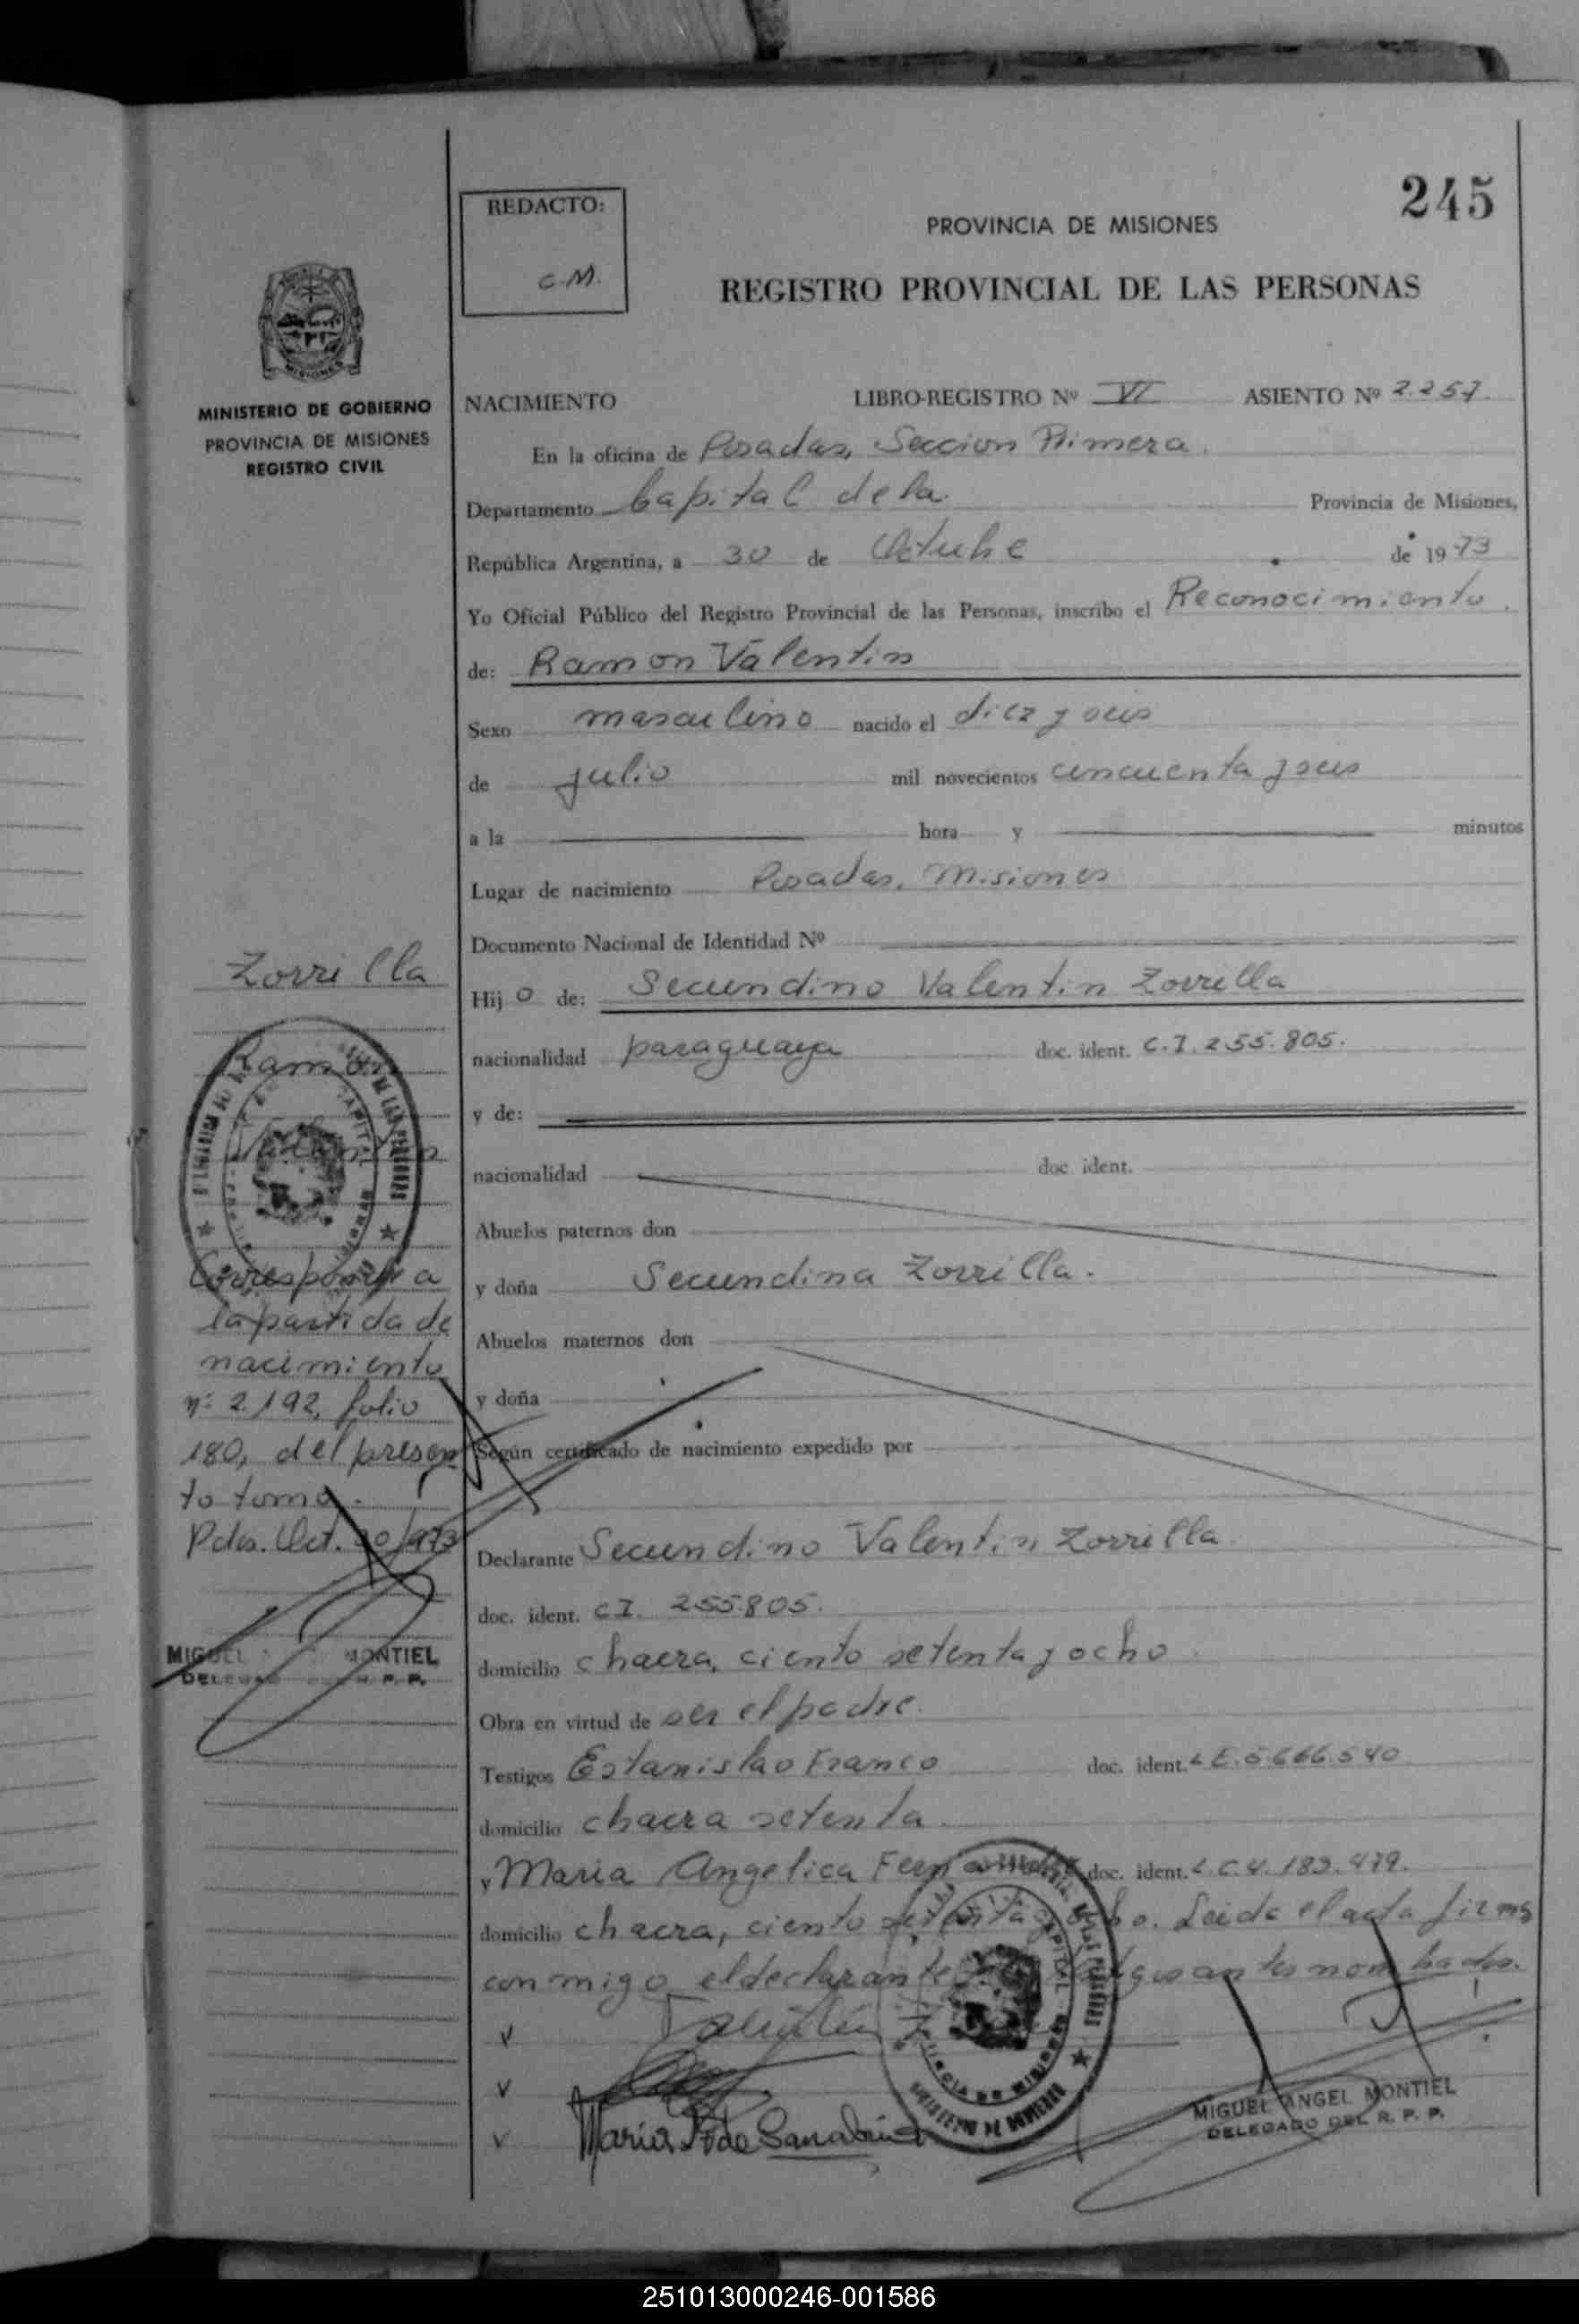 245
REDACTO:
C.M.
PROVINCIA DE MISIONES
REGISTRO PROVINCIAL DE LAS PERSONAS
MISIONES
MINISTERIO DE GOBIERNO
PROVINCIA DE MISIONES
REGISTRO CIVIL
NACIMIENTO LIBRO-REGISTRO Nº VI ASIENTO Nº 2.257.
En la oficina de Posadas, Seccion Primera.
Departamento Capital de la Provincia de Misiones,
República Argentina, a 30 de Octubre de 1973
Yo Oficial Público del Registro Provincial de las Personas, inscribo el Reconocimiento.
de: Ramon Valentin
Sexo masculino nacido el diez y seis
de julio mil novecientos cincuenta y seis
a la hora y minutos
Lugar de nacimiento Posadas, Misiones
Documento Nacional de Identidad Nº
Hijo de: Secundino Valentin Zorrilla
nacionalidad paraguaya doc. ident. C.I. 255.805.
y de:
nacionalidad doc. ident.
Abuelos paternos don
y doña Secundina Zorrilla.
Abuelos maternos don
y doña
Según certificado de nacimiento expedido por
Declarante Secundino Valentin Zorrilla
doc. ident. CI. 255.805.
domicilio chacra, ciento setenta y ocho.
Obra en virtud de ser el padre.
Testigos Estanislao Franco doc. ident. L E. 5.666.540
domicilio chacra setenta.
y Maria Angelica doc. ident. L.C. 4.189.479.
domicilio chacra, ciento setenta y ocho. Leida el acta firma
conmigo el declarante antes nombrados.
Valentin Z
Maria F de Sanabria
MIGUEL ANGEL MONTIEL
DELEGADO DEL R. P. P.
Zorrilla
Ramon
Valentin
Corresponde a
la partida de
nacimiento
nº 2192, folio
180, del presen
te tomo.
Pdas. Oct. 30/973
MIGUEL MONTIEL
DELEGADO R. P. P.
251013000246-001586